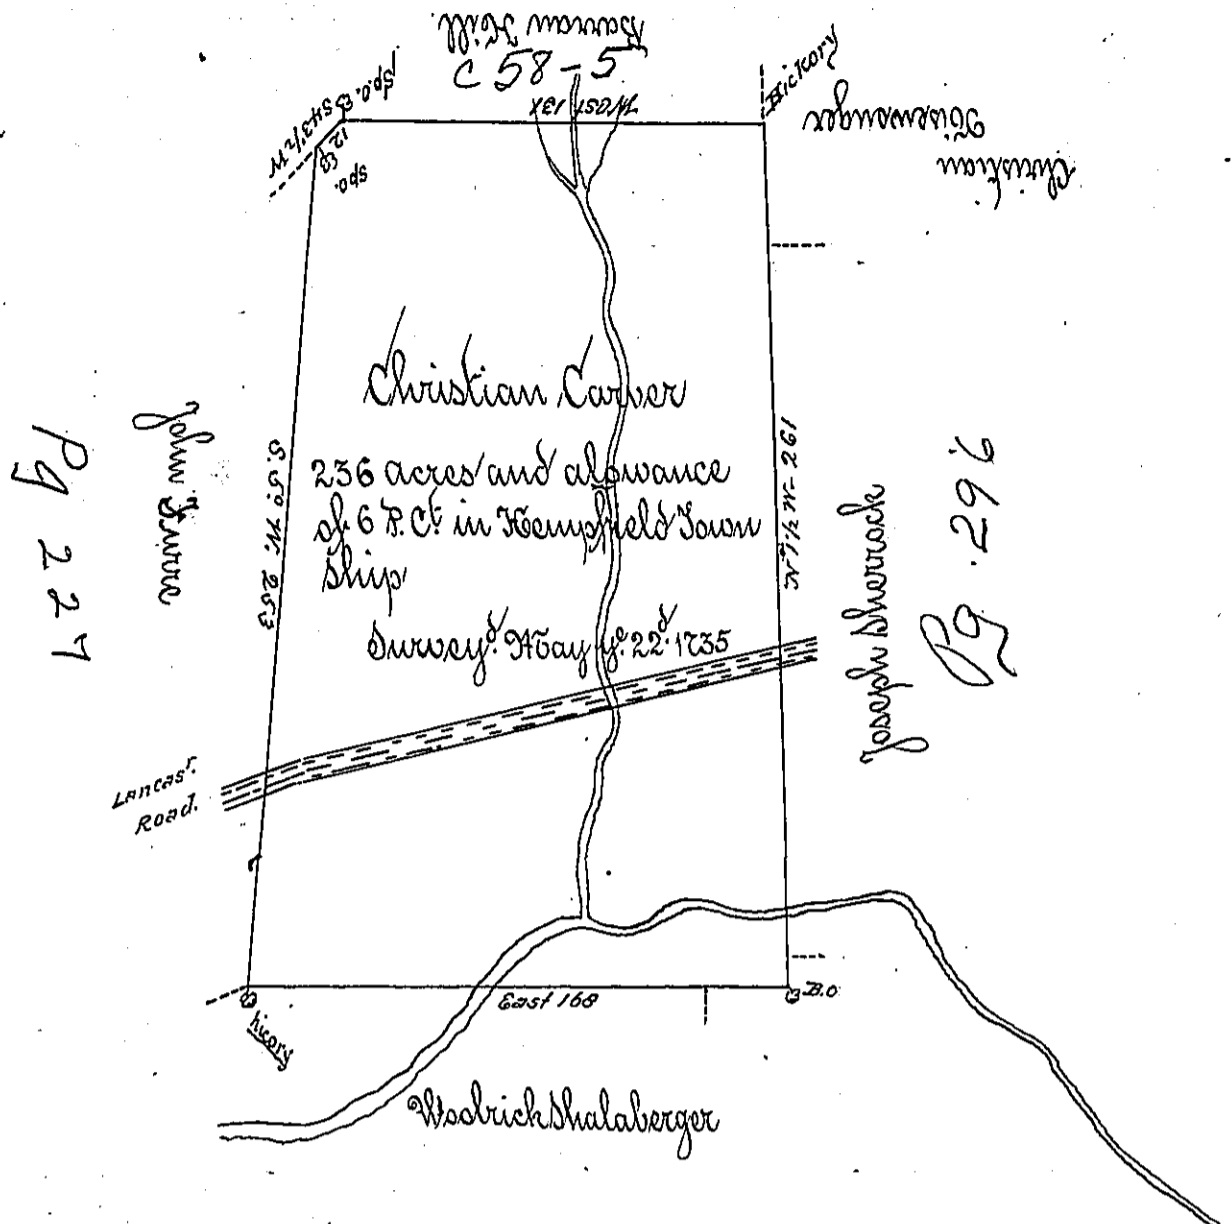 Barran Hill
C 58-5
West 131
Hickory
Christian
Hisewanger
Spo. B
S 43 1/2 W
12 P
spo.
Christian Carver
236 acres and alowance
of 6 P. Ct. in Hempfield Town
ship
Survey'd. May ye. 22d. 1735
John
S. 5° W. 253
Pg 227
N° 1 1/2 W- 261
Joseph Sherrack
Pg. 296
Lancasr.
Road.
East 168
B.O
hicory
Woolrich Shalaberger